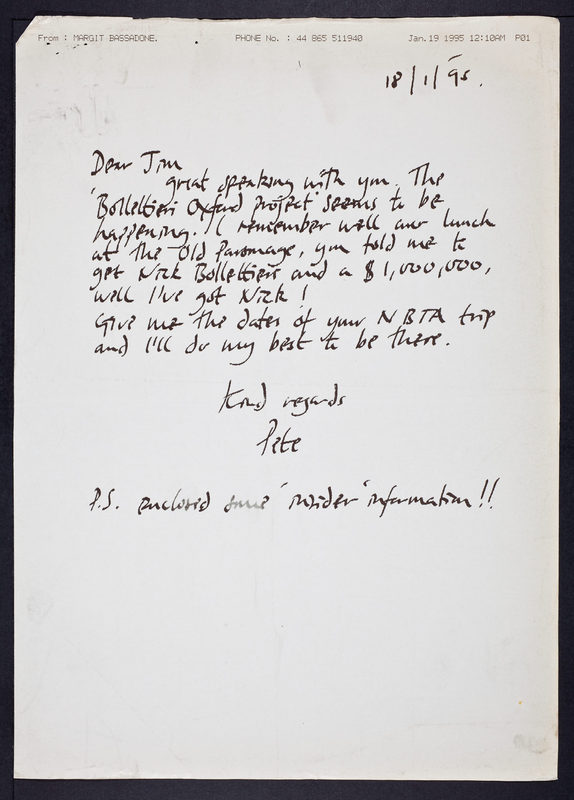 From : MARGIT BASSADONE. PHONE No. : 44 865 511940 Jan.19 1995 12:10AM P01
18/1/95.
Dear Jim
great speaking with you. The
'Bollettieri Oxford Project' seems to be
happening. I remember well our lunch
at the Old Parsonage, you told me to
get Nick Bollettieri and a $1,000,000,
well I've got Nick!
Give me the dates of your NBTA trip
and I'll do my best to be there.
Kind regards
Pete
P.S. enclosed some 'insider' information!!